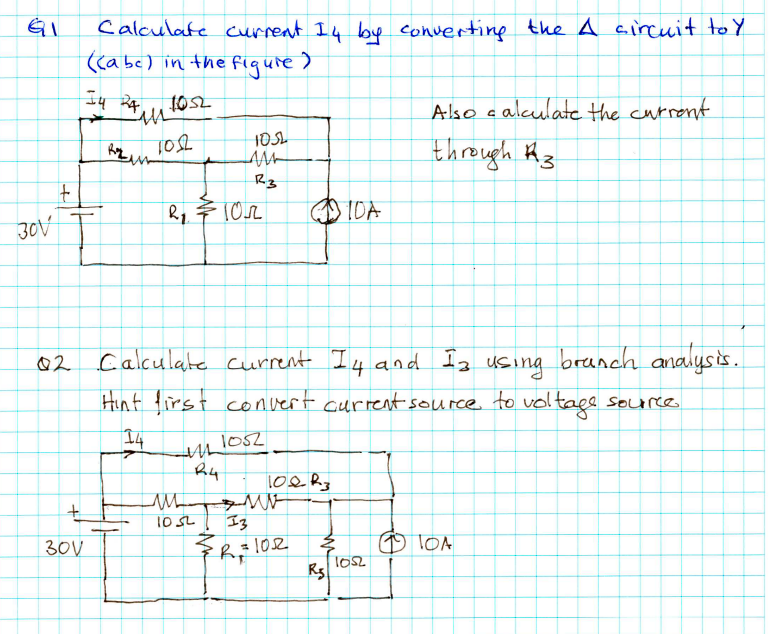 Q1 Calculate current I4 by converting the Δ circuit to Y
((abc) in the figure)
I4 R4 10Ω
Also calculate the current
through R3
R2 10Ω
10Ω
R3
+
30V
R1
10Ω
10A
Q2 Calculate current I4 and I3 using branch analysis.
Hint first convert current source to voltage source
I4
10Ω
R4
10Ω R3
+
10Ω
I3
30V
R1=10Ω
R5
10Ω
10A